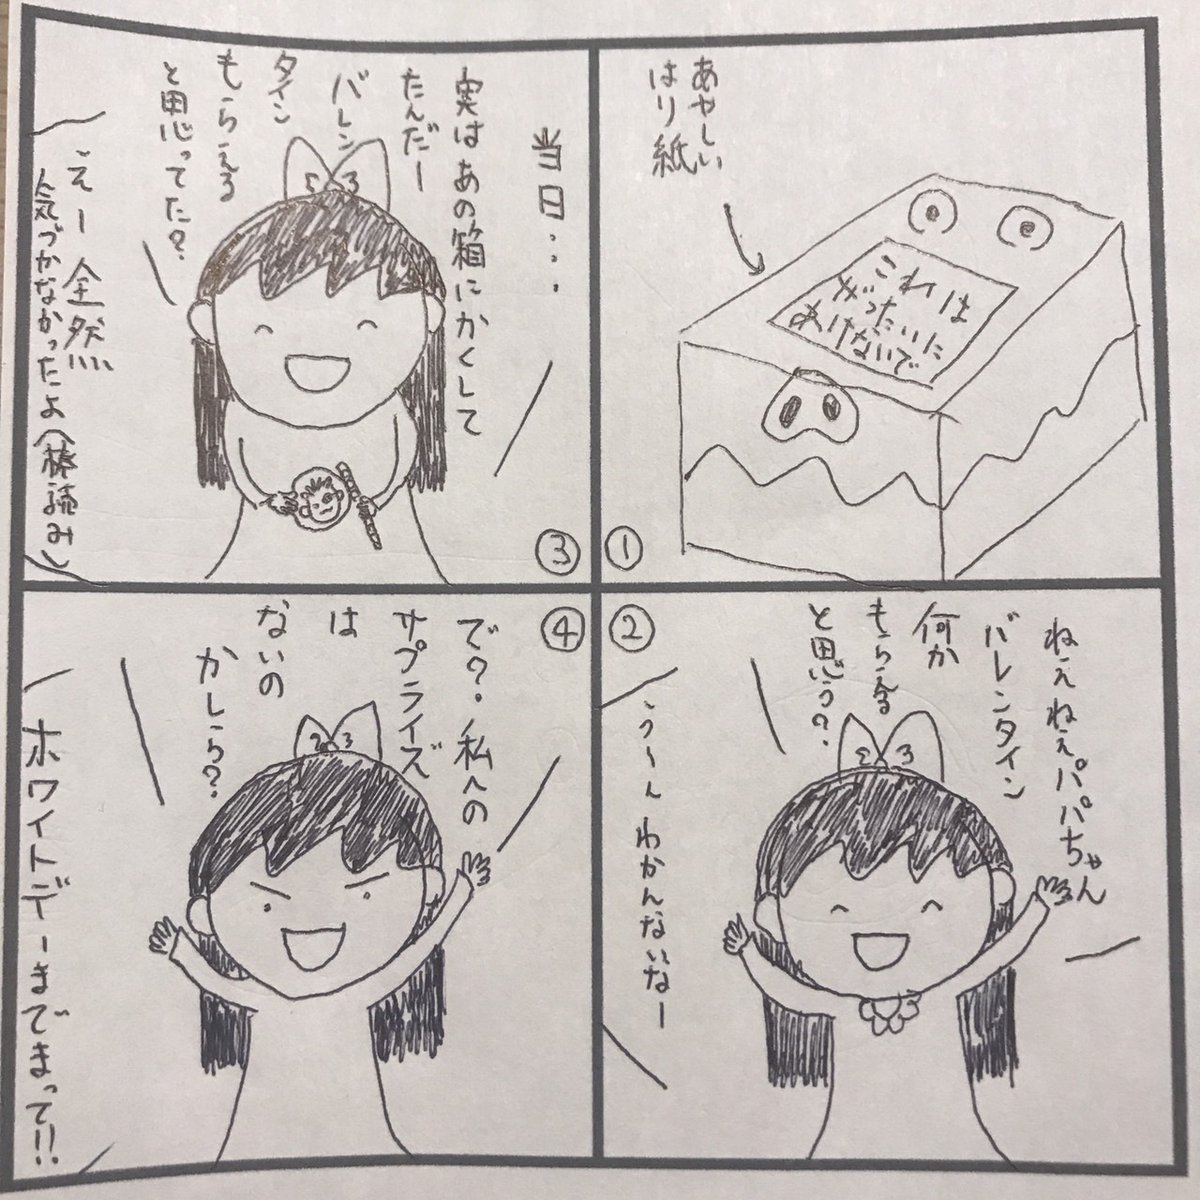 ①
あやしい
はり紙
これは
ぜったいに
あけないで
②
ねぇねぇパパちゃん
バレンタイン
何か
もらえる
と思う?
う〜ん わかんないなー
③
当日・・・
実はあの箱にかくして
たんだー
バレン
タイン
もらえる
と思ってた?
えー 全然
気づかなかったよ(棒読み)
④
で?私への
サプライズ
は
ないの
かしら?
ホワイトデーまでまって!!